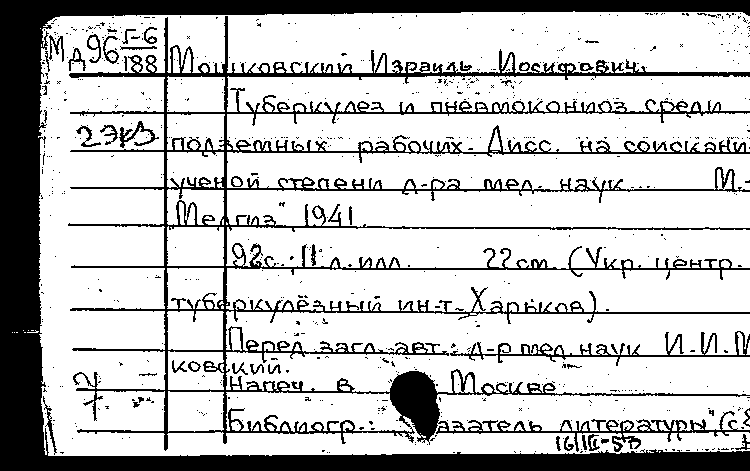 Мд96 Г-6/188 Мошковский, Израиль Иосифович.
Туберкулез и пневмокониоз среди
2 экз подземных рабочих. Дисс. на соискани
ученой степени д-ра мед. наук... М.-
"Медгиз", 1941.
92с.; 11 л. илл. 22см. (Укр. центр.
туберкулёзный ин-т-Харьков).
Перед загл. авт.: д-р мед. наук И.И.М
ковский.
Напеч. в Москве
Библиогр.: азатель литературы" (с.
16/III-53